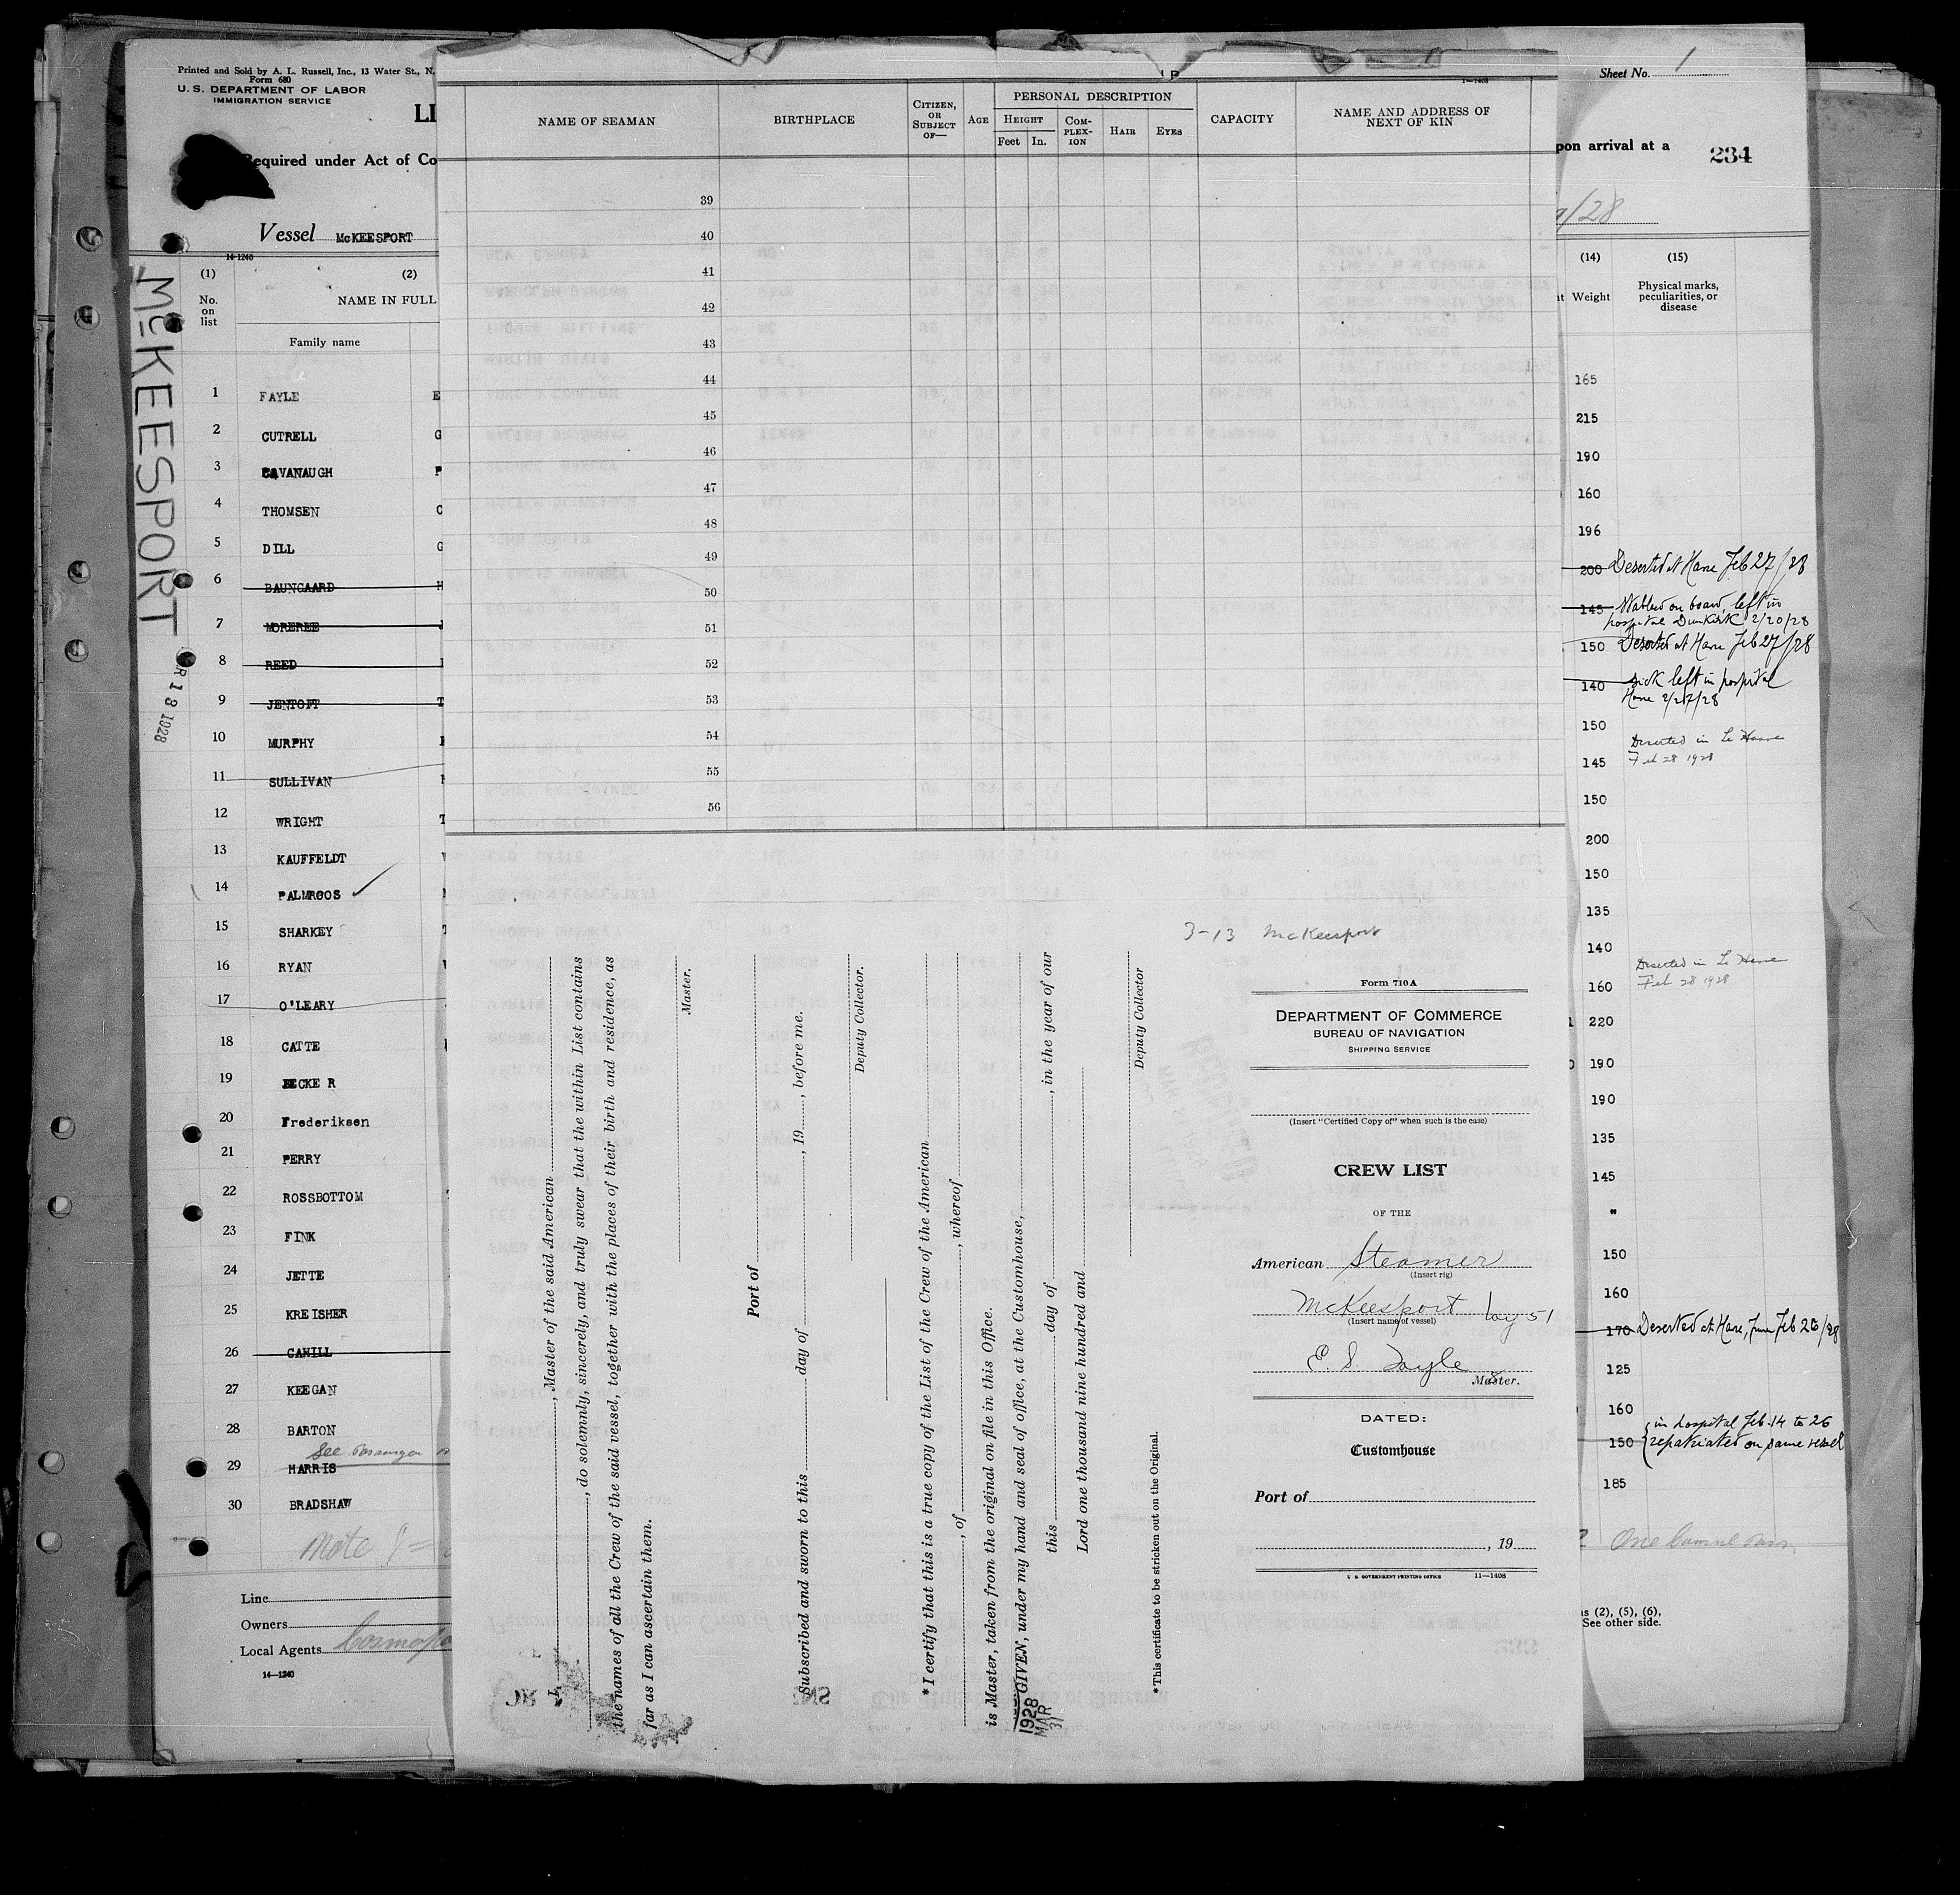 Printed and Sold by A. L. Russell, Inc., 13 Water St., N.
Form 680
U. S. DEPARTMENT OF LABOR
IMMIGRATION SERVICE
LI
Required under Act of Co
Vessel McKEESPORT
14-1240
(1)
(2)
No. on list
NAME IN FULL
Family name
McKEESPORT
R 1 8 1928
1 FAYLE E
2 CUTRELL G
3 CAVANAUGH P
4 THOMSEN C
5 DILL G
6 BAUNGAARD H
7 MOREREE
8 REED
9 JENTOFT T
10 MURPHY
11 SULLIVAN
12 WRIGHT T
13 KAUFFELDT
14 PALMROOS
15 SHARKEY
16 RYAN
17 O'LEARY
18 CATTE
19 BECKER
20 Frederiksen
21 PERRY
22 ROSSBOTTOM
23 FINK
24 JETTE
25 KREISHER
26 CAHILL
27 KEEGAN
28 BARTON
See Passenger
29 HARRIS
30 BRADSHAW
Note
Line
Owners
Local Agents Cosmopo
14—1240
NAME OF SEAMAN
BIRTHPLACE
CITIZEN, OR SUBJECT OF—
AGE
PERSONAL DESCRIPTION
HEIGHT
Feet
In.
COM-PLEX-ION
HAIR
EYES
CAPACITY
NAME AND ADDRESS OF NEXT OF KIN
39
40
41
42
43
44
45
46
47
48
49
50
51
52
53
54
55
56
, Master of the said American
, do solemnly, sincerely, and truly swear that the within List contains
the names of all the Crew of the said vessel, together with the places of their birth and residence, as
far as I can ascertain them.
Master.
Port of
Subscribed and sworn to this day of , 19 , before me.
Deputy Collector.
*I certify that this is a true copy of the List of the Crew of the American
, of , whereof
is Master, taken from the original on file in this Office.
GIVEN, under my hand and seal of office, at the Customhouse,
this day of , in the year of our
Lord one thousand nine hundred and
Deputy Collector
*This certificate to be stricken out on the Original.
1928 MAR 31
3-13 McKeesport
Form 710A
DEPARTMENT OF COMMERCE
BUREAU OF NAVIGATION
SHIPPING SERVICE
(Insert "Certified Copy of" when such is the case)
CREW LIST
OF THE
American Steamer
(Insert rig)
McKeesport Voy 51
(Insert name of vessel)
E. S. Fayle
Master.
DATED:
Customhouse
Port of
, 19
U. S. GOVERNMENT PRINTING OFFICE 11—1408
Sheet No. 1
pon arrival at a
234
/28
(14)
(15)
Weight
Physical marks, peculiarities, or disease
165
215
190
160
196
200 Deserted at Havre Feb 27/28
145 on board, left in
hospital Dunkirk 2/20/28
150 Deserted at Havre Feb 27/28
140 Sick left in hospital
Havre 2/27/28
150
145 Deserted in Le Havre
Feb 28 1928
150
200
150
135
140
160 Deserted in Le Havre
Feb 28 1928
220
190
190
135
145
"
150
160
170 Deserted at Havre, Feb 26/28
125
160
150 in hospital Feb. 14 to 26
repatriated on same vessel
185
One
s (2), (5), (6),
See other side.